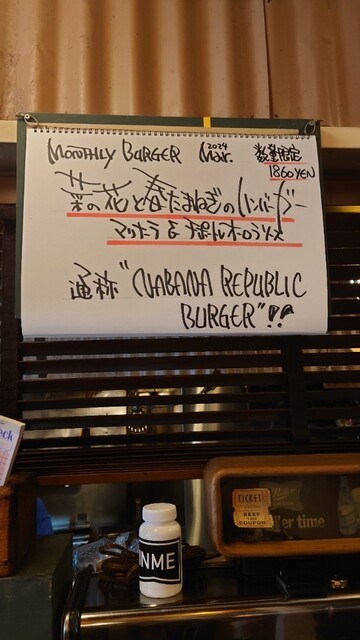 MONTHLY BURGER 2024 Mar. 数量限定
1860YEN
菜の花と春たまねぎのハンバーガー
通称 "NABANA REPUBLIC
BURGER"!!
eck
TICKET
KEEP
THIS
COUPON
er time
NME